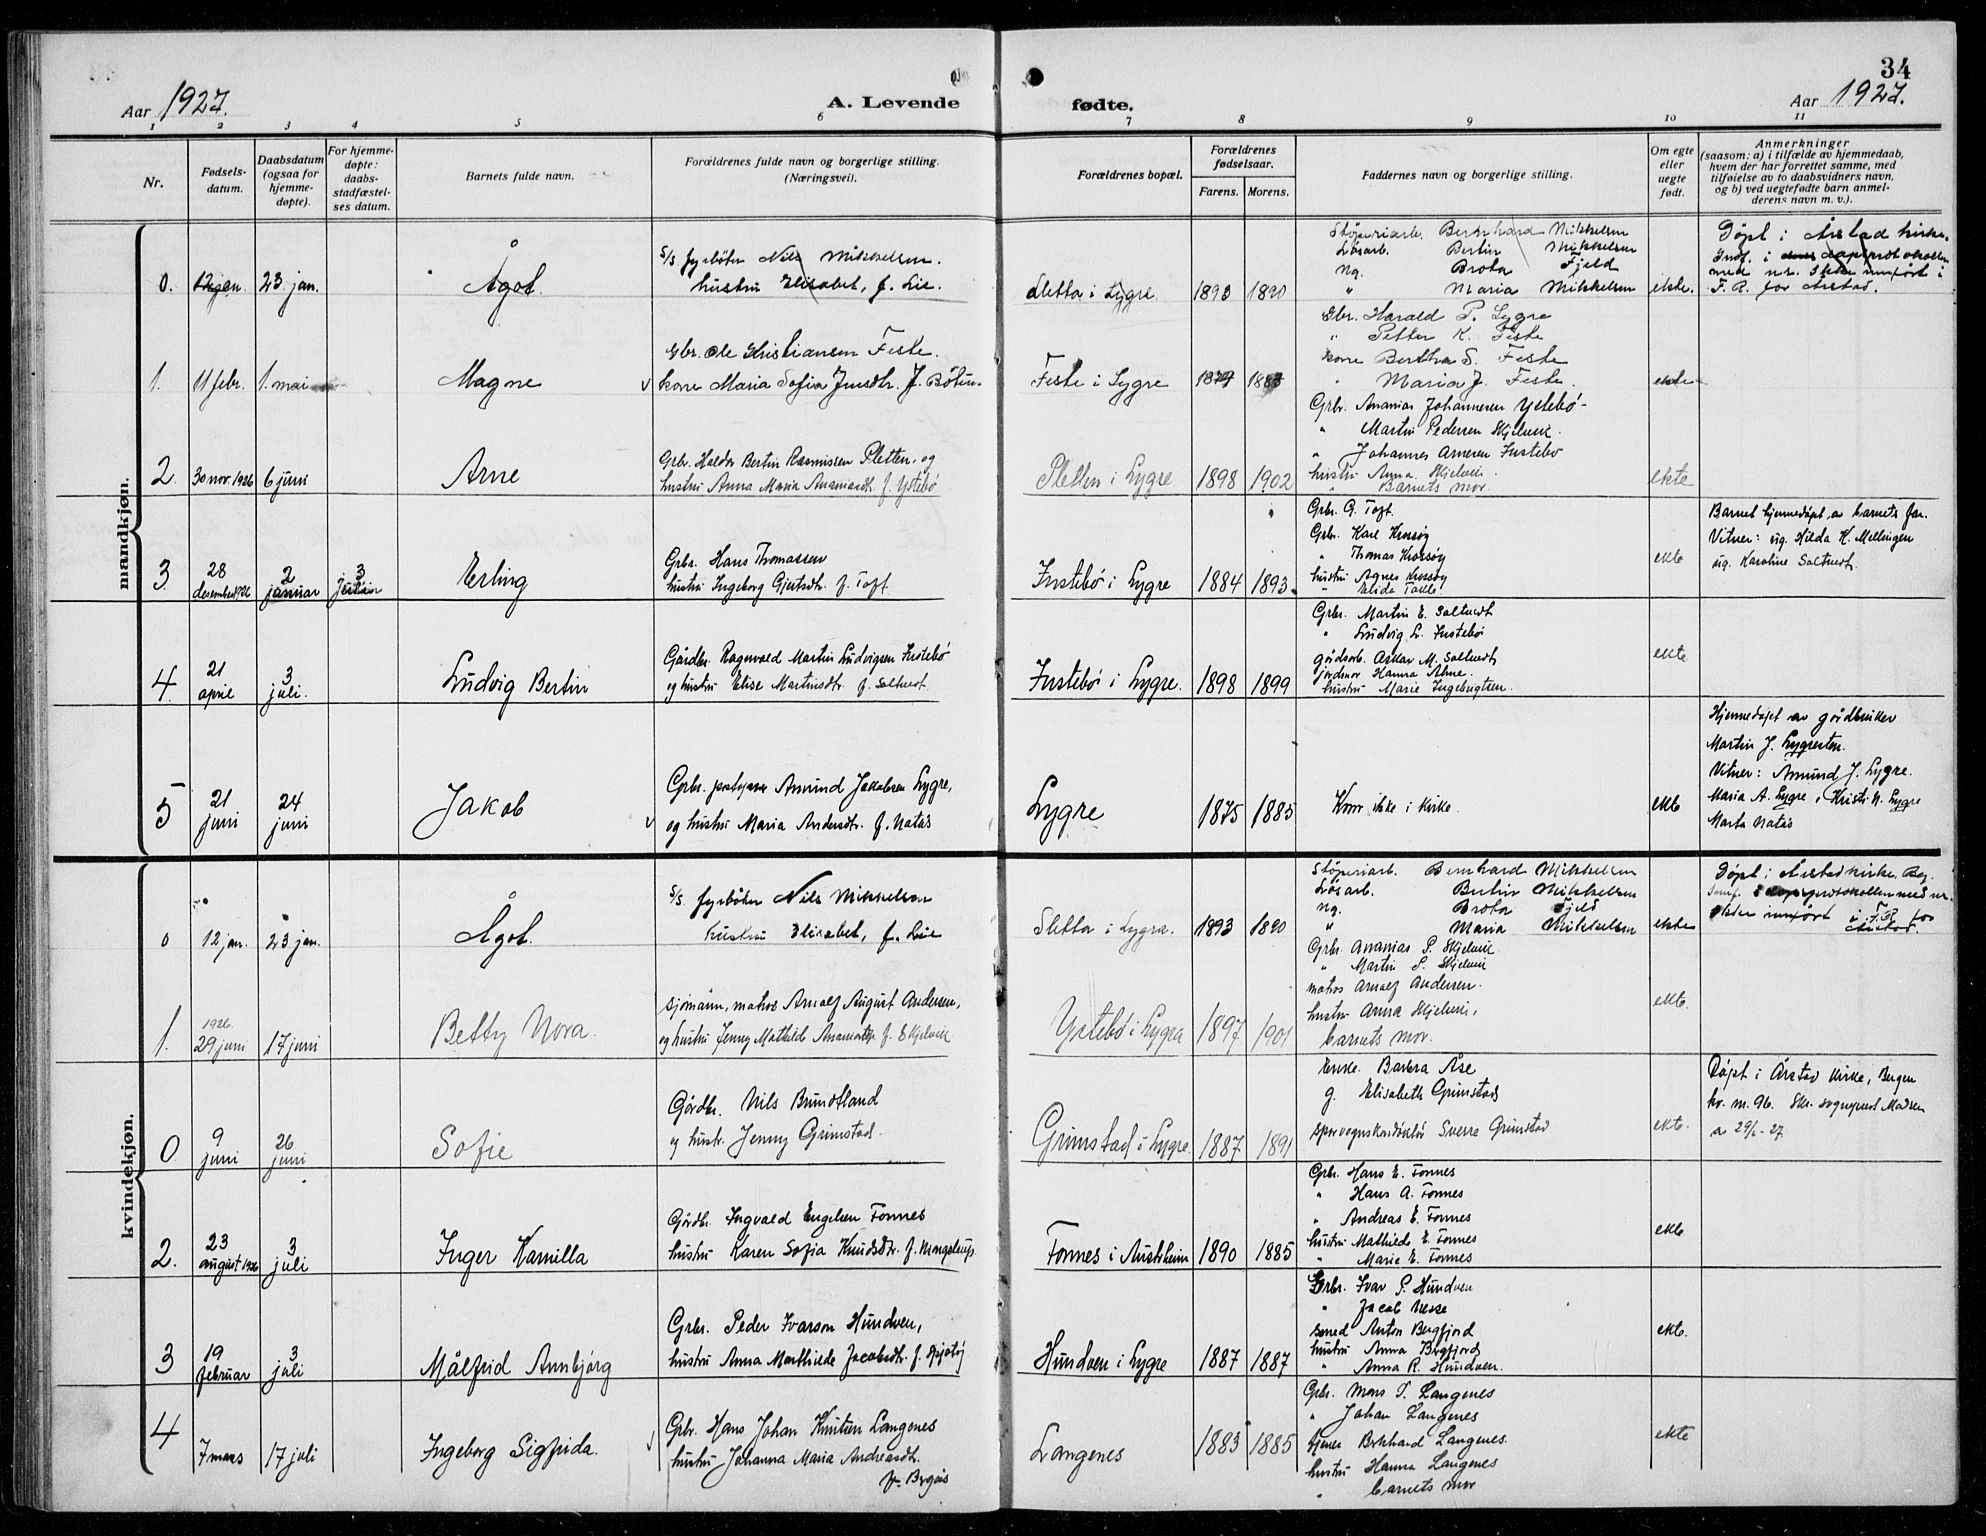 34
Aar 1927.
A. Levende fødte.
Aar 1927.
1 2 3 4 5 6 7 8 9 10 11
Nr.
Fødsels-
datum.
Daabsdatum
(ogsaa for
hjemme-
døpte).
For hjemme-
døpte:
daabs-
stadfæstel-
ses datum.
Barnets fulde navn.
Forældrenes fulde navn og borgerlige stilling.
(Næringsvei).
Forældrenes bopæl.
Forældrenes
fødselsaar.
Farens. Morens.
Faddernes navn og borgerlige stilling.
Om egte
eller
uegte
født.
Anmerkninger
(saasom: a) i tilfælde av hjemmedaab,
hvem der har forrettet samme, med
tilføielse av to daabsvidners navn,
og b) ved uegtefødte barn anmel-
derens navn m. v.).
mandkjøn.
0. 12 jan. 23. jan. Ågot.
S/S fyrbøter Nils Mikkelsen.
hustru Elisabet, f. Lie.
Sletta i Lygre. 1893 1890
Støperiarb. Bernhard Mikkelsen
Løsarb. Bertin Mikkelsen
Ug. Brota Fjeld
" Maria Mikkelsen
ekte.
Døpt i Årstad kirke.
F. R. for Årstad.
1. 11 febr. 1. mai Magne
Gbr. Ole Kristiansen Feste.
kone Maria Sofia f. Bøtun.
Feste i Lygre 1879 1883
Gbr. Harald P. Lygre
" Petter K. Feste
kone Bertha S. Feste
" Maria J. Feste.
ekte
2. 30 nov. 1926 6 juni Arne
Grbr. Haldor Bertin Rasmussen Sletten, og
hustru Anna Maria Ananiasdt. f. Ystebø
Sletten i Lygre 1898 1902
Grbr. Ananias Johannesen Ystebø
" Martin Pedersen Skjelvik.
" Johannes Arnesen Instebø
hustru Anna Skjelvik.
Barnets mor.
ekte
3. 28 desember 1926 2 januar 3 juli Erling
Grbr. Hans Thomassen
hustru Ingeborg Gjertsdtr. f. Toft
Instebø i Lygre 1884 1893.
Grbr. G. Toft.
Grbr. Karl Krossøy
" Thomas Krossøy
hustru Agnes Krossøy
" Elida Takle
ekte
Barnet hjemmedøpt av barnets far.
Vitner: ug. Hilda K. Mellingen
ug. Karoline Saltvedt.
4. 21 april 3 juli. Ludvig Bertin
Gårdbr. Ragnvald Martin Ludvigsen Instebø
og hustru Elise Martinsdtr. f. Saltvedt.
Instebø i Lygre. 1898 1899
Grbr. Martin E. Saltvedt
" Ludvig L. Instebø
gårdsarb. Askar M. Saltvedt
jordmor Hanna Alme.
hustru Marie Ingebrigtsen.
ekte
5 21 juni 24 juni Jakob
Grbr. Amund Jakobsen Lygre,
og hustru Maria Andersdtr. f. Natås
Lygre 1875 1885
Kom ikke i kirke.
ekte
Hjemmedøpt av gårdbruker
Martin J. Lygresten.
Vitner: Amund J. Lygre.
Maria A. Lygre, Kristi N. Lygre
Marta Natås
kvindekjøn.
0 12 jan. 23 jan. Ågot.
S/S. fyrbøter Nils Mikkelsen
hustru Elisabet, f. Lie
Sletta i Lygra. 1893 1890
Støperiarb. Bernhard Mikkelsen
Løsarb. Bertin Mikkelsen
Ug. Brota Fjeld
" Maria Mikkelsen
ekte
Døpt i Årstad kirke, Bg.
i F. R. for
Årstad.
1. 1926. 29 juni 17 juni Betty Nora.
Sjømann, matros Arnolf August Andersen,
og hustru Jenny Mathilde Ananiasdtr. f. Skjelvik
Ystebø i Lygra 1897 1901
Grbr. Ananias P. Skjelvik
" Martin P. Skjelvik
matros Arnolf Andersen.
hustru Anna Skjelvik,
barnets mor.
ekte.
0 9 juni 26 juni Sofie
Gårdbr. Nils Brundtland
og hustr. Jenny Grimstad.
Grimstad i Lygre. 1887 1891
Enke. Barbra Åse
g. Elisabeth Grimstad
sporvognskonduktør Sverre Grimstad
ekte.
Døpt i Årstad kirke, Bergen
nr. 96. Skr. sogneprest Madsen
a 29/6-27
2. 23 august 1926 3 juli Inger Kamilla
Gårdbr. Ingvald Engelsen Fonnes
hustru Karen Sofia Knudsdtr. f. Mongstrup.
Fonnes i Austrheim 1890 1885
Grbr. Hans E. Fonnes
" Hans A. Fonnes
" Andreas E. Fonnes
hustru Mathilde E. Fonnes
" Marie E. Fonnes
ekte
3 19 februar 3 juli Målfrid Annbjørg
Grbr. Peder Ivarson Hundven,
hustru Anna Marthilde Jacobsdtr.
Hundven i Lygre 1887 1887
Grbr. Ivar P. Hundven
" Jacob Nesse
Anton Bergfjord
hustru Anna Bergfjord
" Anna R. Hundven.
ekte.
4 7 mars 17 juli Ingeborg Sigfrida.
Grbr. Hans Johan Knutsen Langenes
hustru Johanna Maria Andreasdtr.
f. Bergås
Langenes 1883 1885
Grbr. Mons T. Langenes
" Johan Langenes
Langenes.
hustru Hanna Langenes
" barnets mor
ekte